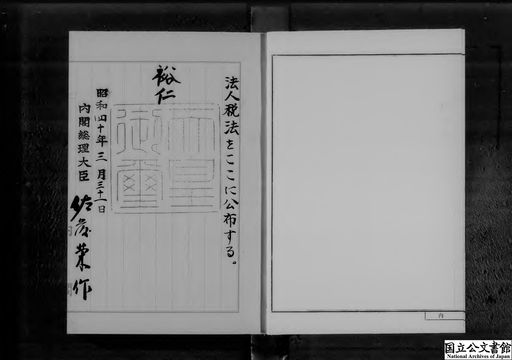 法人税法をここに公布する。
裕仁
天皇
御璽
昭和四十年三月三十一日
内閣総理大臣 佐藤榮作
国立公文書館
National Archives of Japan